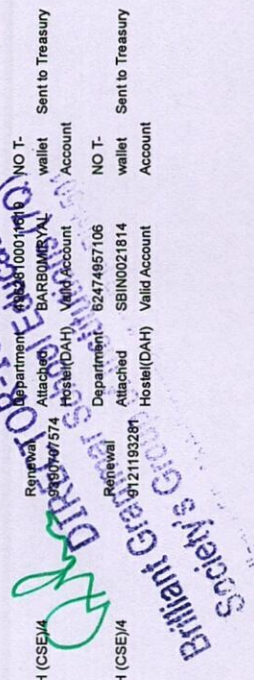 H (CSE)/4
Renewal
9390707574
Department
Attached
Hostel(DAH)
BARB0MIRYAL
Valid Account
NO T-
wallet
Account
Sent to Treasury
H (CSE)/4
Renewal
9121193281
Department
Attached
Hostel(DAH)
62474957106
SBIN0021814
Valid Account
NO T-
wallet
Account
Sent to Treasury
DIRECTOR-
Brilliant Grammar School Educational
Society's Group of Institutions